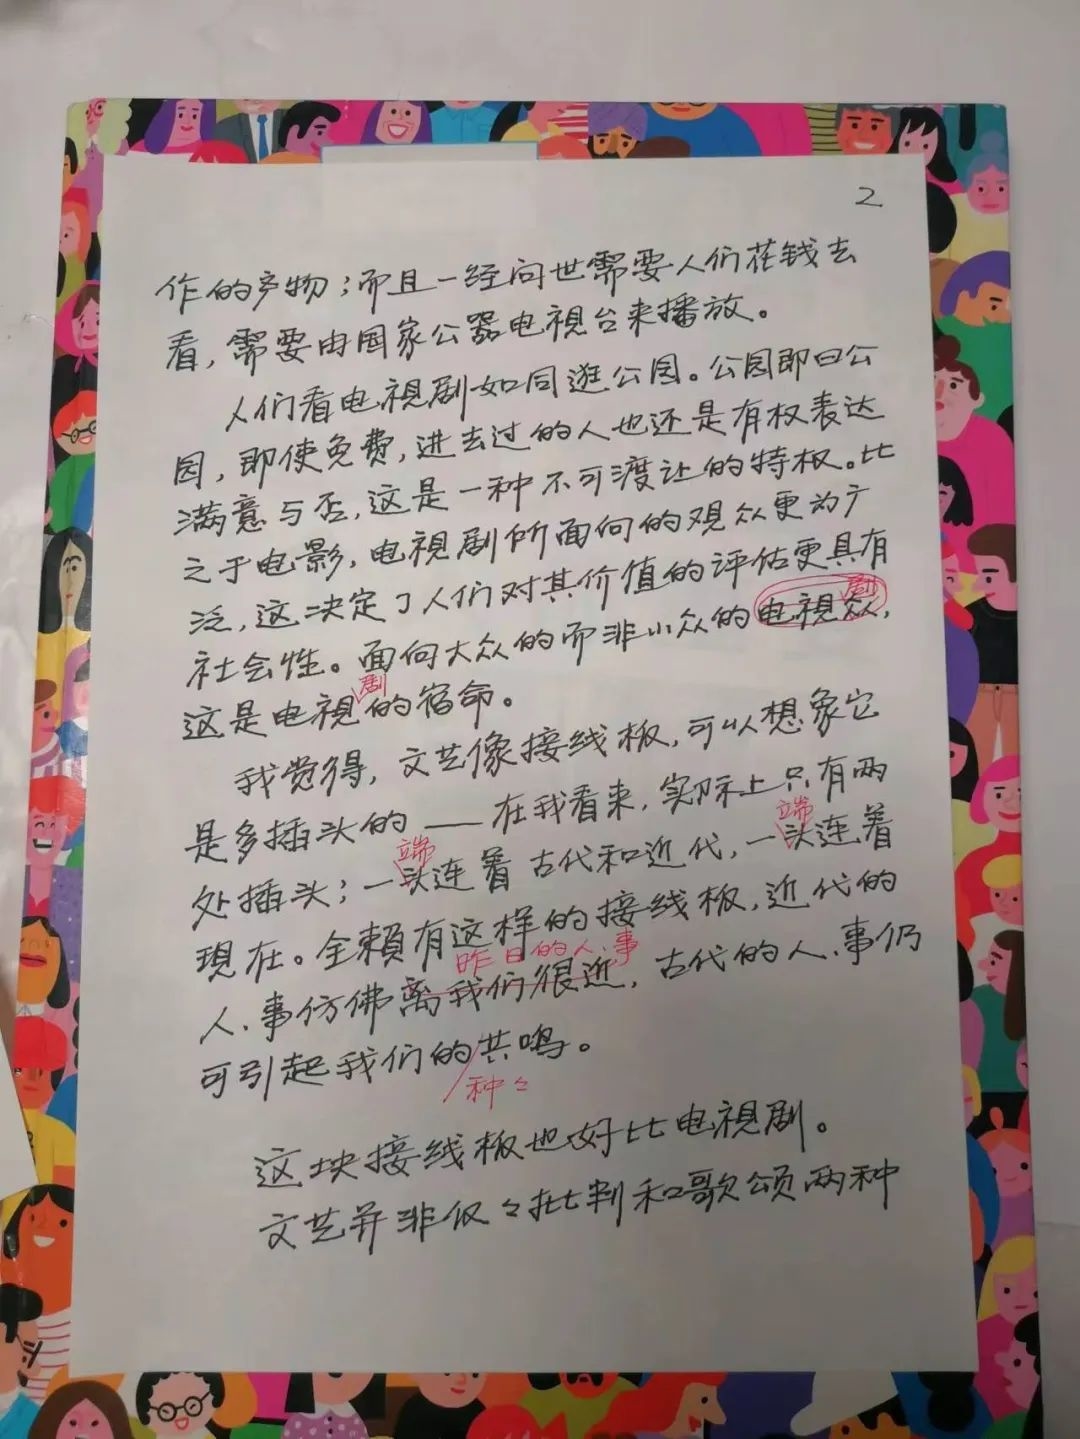 2
作的产物；而且一经问世需要人们花钱去
看，需要由国家公器电視台来播放。
人们看电視剧如同逛公园。公园即曰公
园，即使免费，进去过的人也还是有权表达
满意与否，这是一种不可渡让的特权。比
之于电影，电視剧所面向的观众更为广
泛，这决定了人们对其价值的评估更具有
剧
社会性。面向大众的而非小众的电視众，
剧
这是电視的宿命。
我觉得，文艺像接线板，可以想象它
是多插头的——在我看来，实际上只有两
端 端
处插头；一头连着古代和近代，一头连着
現在。全賴有这样的接线板，近代的
昨日的人、事
人、事仿佛离我们很近，古代的人、事仍
可引起我们的共鳴。
种々
这块接线板也好比电視剧。
文艺并非仅々批判和歌颂两种